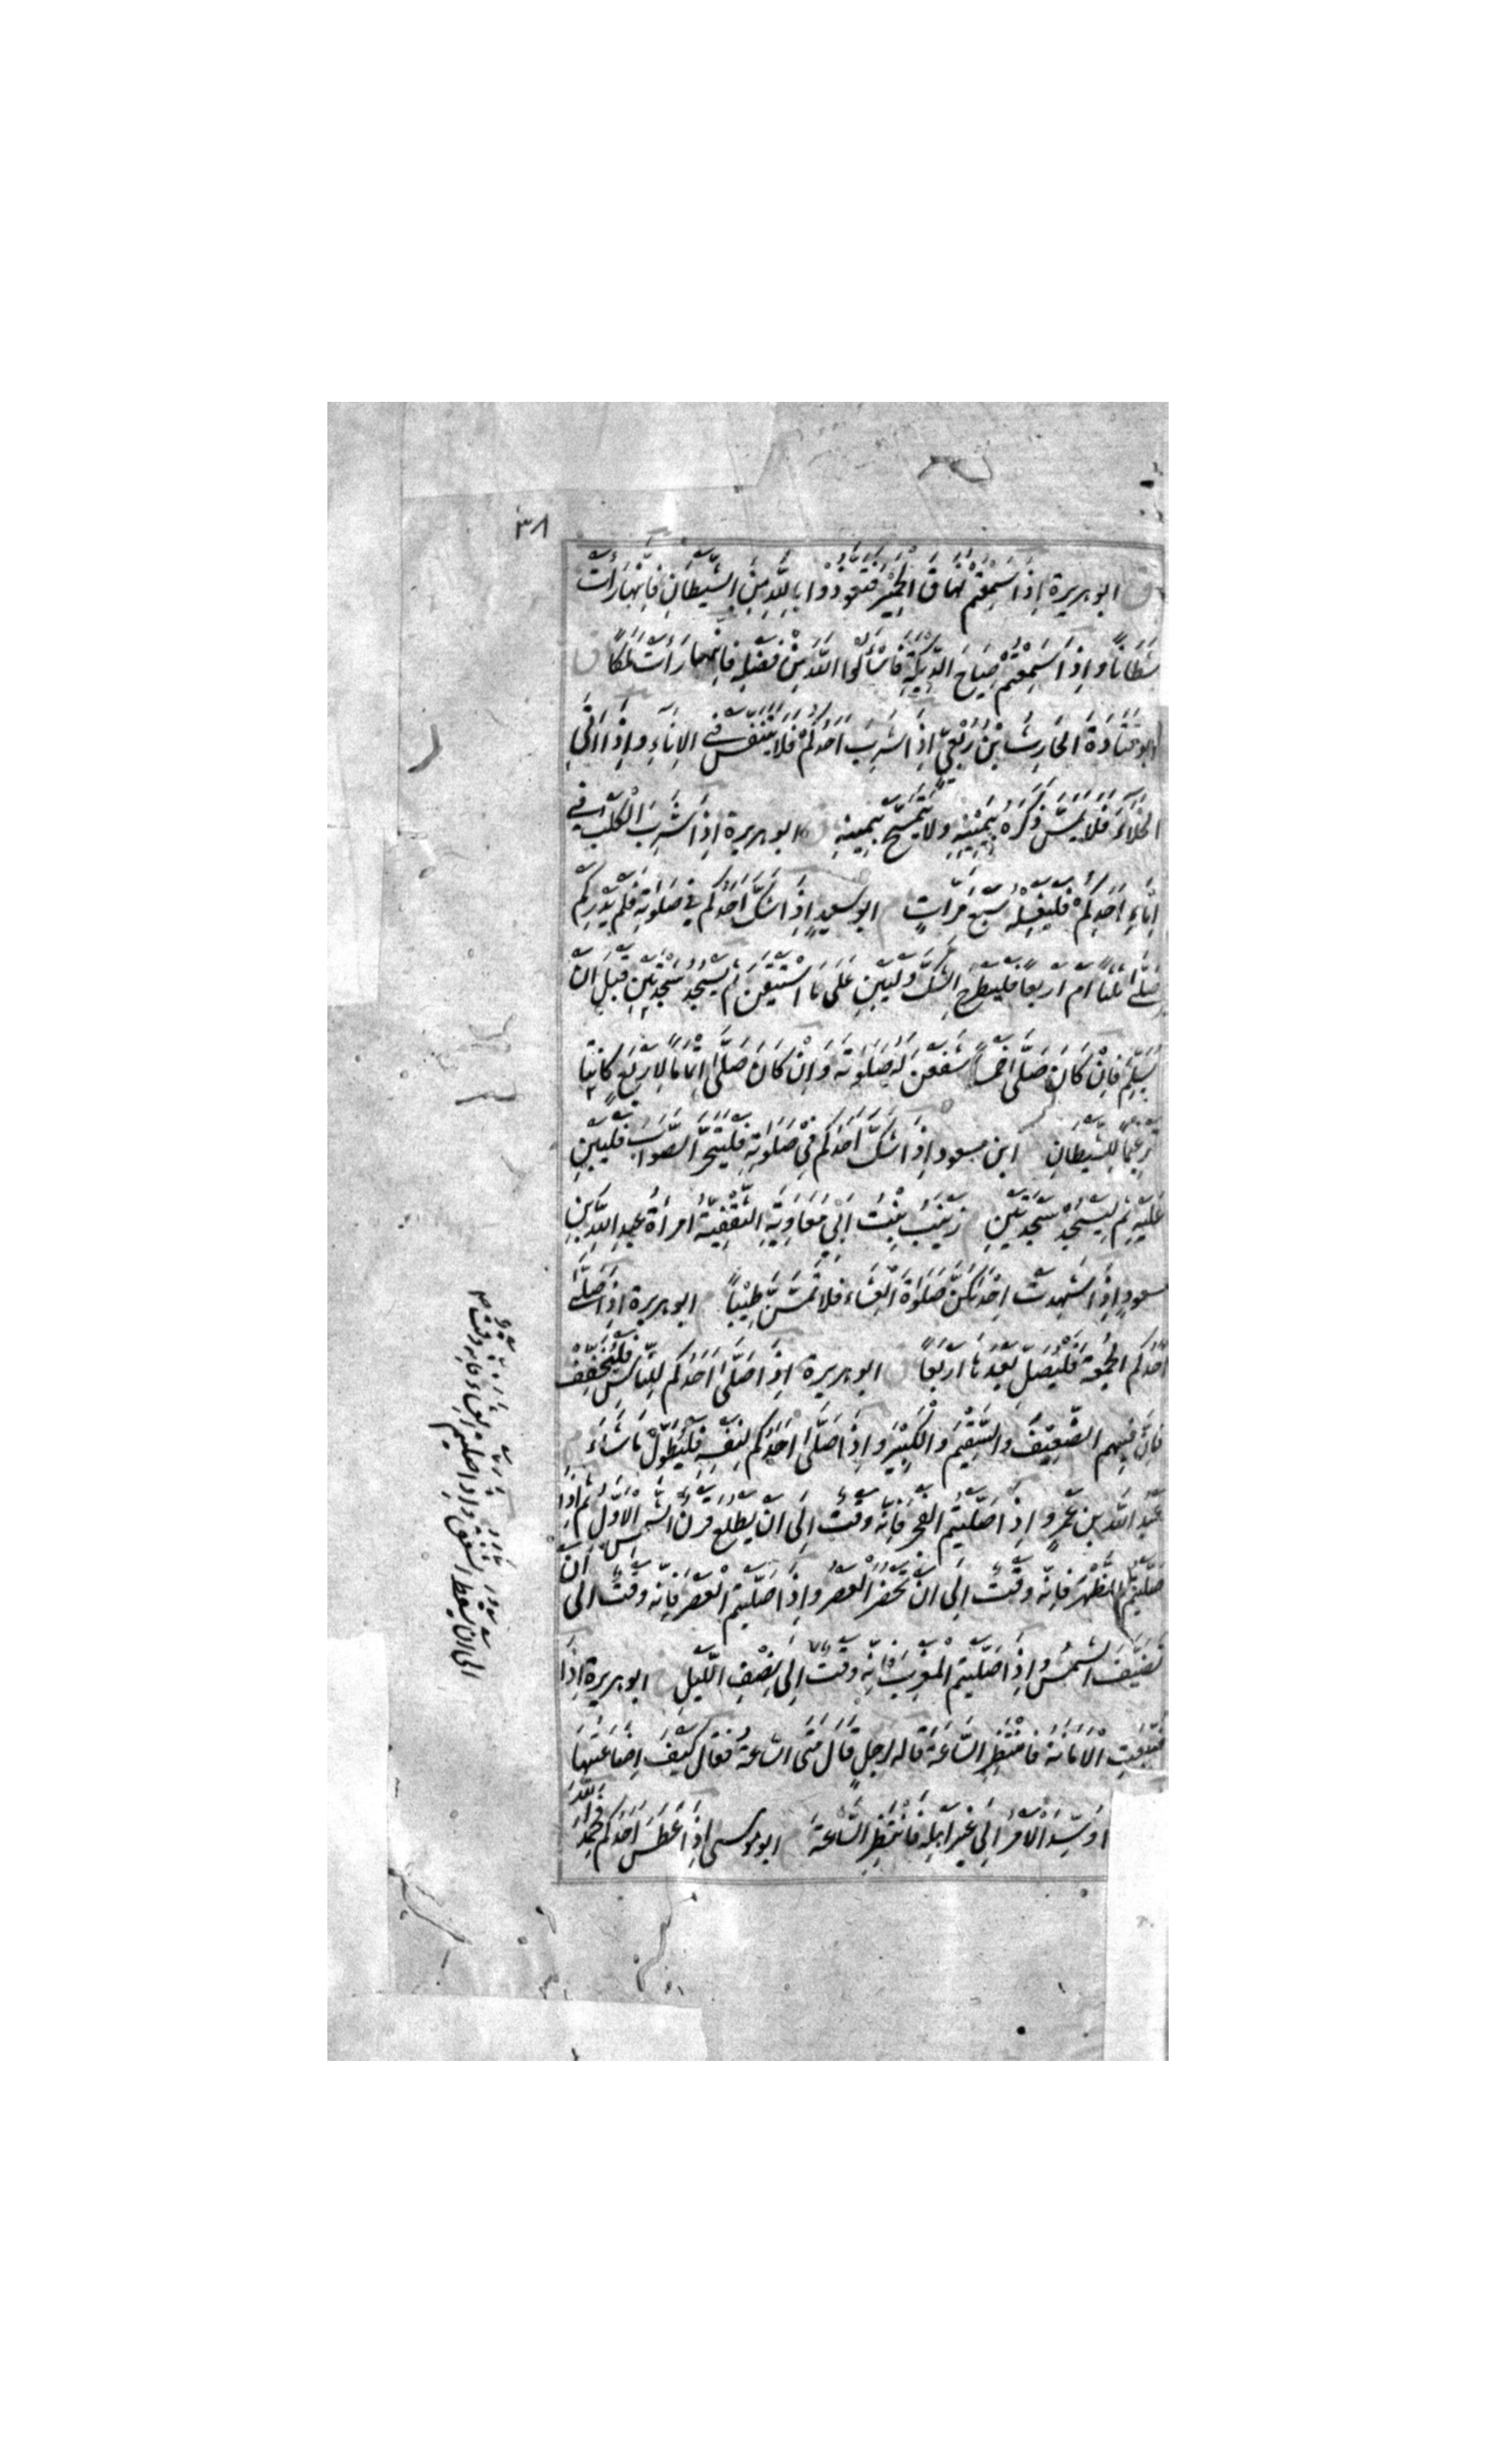 ٣٨
ق ابو هريرة اِذَا سَمِعْتُمْ نُهَاقَ الْحَمِيْرِ فَتَعَوَّذُوْا بِاللّٰهِ مِنَ الشَّيْطَانِ فَاِنَّهَا رَأَتْ
شَيْطَانًا وَاِذَا سَمِعْتُمْ صِيَاحَ الدِّيَكَةِ فَاسْأَلُوا اللّٰهَ مِنْ فَضْلِهِ فَاِنَّهَا رَأَتْ مَلَكًا ق
ابو قَتَادَةَ الحَارِثُ بْنُ رِبْعِيٍّ اِذَا شَرِبَ اَحَدُكُمْ فَلَا يَتَنَفَّسْ فِي الاِنَاءِ وَاِذَا اَتَى
الخَلَاءَ فَلَا يَمَسَّ ذَكَرَهُ بِيَمِيْنِهِ وَلَا يَتَمَسَّحْ بِيَمِينِهِ ق ابو هريرة اِذَا شَرِبَ الْكَلْبُ فِي
اِنَاءِ اَحَدِكُمْ فَلْيَغْسِلْهُ سَبْعَ مَرَّاتٍ ابو سعيدٍ اِذَا شَكَّ اَحَدُكُمْ فِي صَلَوٰتِهِ فَلَمْ يَدْرِ كَمْ
صَلَّى ثَلٰثًا اَمْ اَرْبَعًا فَلْيَطْرَحِ الشَّكَّ وَلْيَبْنِ عَلَى مَا اسْتَيْقَنَ ثُمَّ يَسْجُدْ سَجْدَتَيْنِ قَبْلَ اَنْ
يُسَلِّمَ فَاِنْ كَانَ صَلَّى خَمْسًا شَفَعْنَ لَهُ صَلَوٰتَهُ وَاِنْ كَانَ صَلَّى اِتْمَامًا لِاَرْبَعٍ كَانَتَا
تَرْغِيْمًا لِلشَّيْطَانِ ابن مسعود اِذَا شَكَّ اَحَدُكُمْ فِي صَلَوٰتِهِ فَلْيَتَحَرَّ الصَّوَابَ فَلْيَبْنِ
عَلَيْهِ ثُمَّ لْيَسْجُدْ سَجْدَتَيْنِ زَيْنَبُ بِنْتُ اَبِي مُعَاوِيَةَ الثَّقَفِيَّةُ امْرَأَةُ عَبْدِ اللّٰهِ بْنِ
مسعودٍ اِذَا شَهِدَتْ اِحْدٰىكُنَّ صَلَوٰةَ الْعِشَاءِ فَلَا تَمَسَّنَّ طِيْبًا ابو هريرة اِذَا صَلَّى
اَحَدُكُمُ الجُمُعَةَ فَلْيُصَلِّ بَعْدَهَا اَرْبَعًا ق ابو هريرة اِذَا صَلَّى اَحَدُكُمْ لِلنَّاسِ فَلْيُخَفِّفْ
فَاِنَّ فِيْهِمُ الضَّعِيْفَ وَالسَّقِيْمَ وَالْكَبِيْرَ وَاِذَا صَلَّى اَحَدُكُمْ لِنَفْسِهِ فَلْيُطَوِّلْ مَا شَاءَ م
عَبْدُ اللّٰهِ بْنُ عَمْرٍو اِذَا صَلَّيْتُمُ الفَجْرَ فَاِنَّهُ وَقْتٌ اِلَى اَنْ يَطْلُعَ قَرْنُ الشَّمْسِ الْاَوَّلُ ثُمَّ اِذَا
صَلَّيْتُمُ الظُّهْرَ فَاِنَّهُ وَقْتٌ اِلَى اَنْ يَحْضُرَ الْعَصْرُ وَاِذَا صَلَّيْتُمُ الْعَصْرَ فَاِنَّهُ وَقْتٌ اِلَى اَنْ
تَضَيَّفَ الشَّمْسُ وَاِذَا صَلَّيْتُمُ الْمَغْرِبَ فَاِنَّهُ وَقْتٌ اِلَى نِصْفِ اللَّيْلِ ابو هريرة اِذَا
ضُيِّعَتِ الْاَمَانَةُ فَانْتَظِرِ السَّاعَةَ قَالَهُ لِرَجُلٍ قَالَ مَتَى السَّاعَةُ فَقَالَ كَيْفَ اِضَاعَتُهَا
اِذَا وُسِّدَ الْاَمْرُ اِلَى غَيْرِ اَهْلِهِ فَانْتَظِرِ السَّاعَةَ ابو موسى اِذَا عَطَسَ اَحَدُكُمْ فَحَمِدَ اللّٰهَ
الى ان يسقط الشفق واذا صليتم العشاء فانه وقت صح